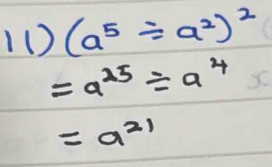 11) (a⁵ ÷ a²)²
= a²⁵ ÷ a⁴ x
= a²¹